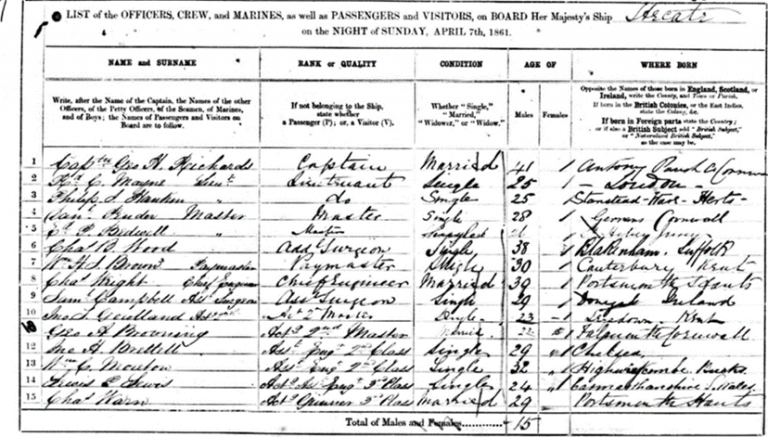 LIST of the OFFICERS, CREW, and MARINES, as well as PASSENGERS and VISITORS, on BOARD Her Majesty's Ship Hecate
on the NIGHT of SUNDAY, APRIL 7th, 1861.
NAME and SURNAME RANK or QUALITY CONDITION AGE OF WHERE BORN
Write, after the Name of the Captain, the Names of the other Officers, of the Petty Officers, of the Seamen, of Marines, and of Boys; the Names of Passengers and Visitors on Board are to follow.
If not belonging to the Ship, state whether a Passenger (P); or, a Visitor (V).
Whether "Single," "Married," "Widower," or "Widow."
Males Females
Opposite the Names of those born in England, Scotland, or Ireland, write the County, and Town or Parish.
If born in the British Colonies, or the East Indies, state the Colony, &c.
If born in Foreign parts state the Country; or if also a British Subject add "British Subject," or "Naturalised British Subject," as the case may be.
1 Captn Geo H. Richards Captain Married 41 Antony Parish Cornwall
2 C. Mayne Lieut Lieutenant Single 25 London
3 Philip J Hankin " do Single 25 Stanstead Ware Herts
4 Danl Pender Master Master Single 28 Cornwall
5 E. P. Bedwell Master
6 Chas B. Wood Addl Surgeon Single 38 Blakenham. Suffolk
7 Wm H. J. Brown Paymaster Paymaster Single 30 Canterbury Kent
8 Chas Wright Chief Engineer Chief Engineer Married 39 Portsmouth Hants
9 Saml Campbell Asst Surgeon Asst Surgeon Single 29 Donegal Ireland
10 Single 23 Kent
Geo A Browning Actg 2nd Master Falmouth Cornwall
12 Jno H. Asst Engr 2nd Class Single 29 Chelsea
13 Wm C. Moulton Asst Engr 2nd Class Single 32 High Wycombe Bucks
14 Lewis E Lewis Actg Asst Engr 3rd Class Single 24 Carmarthenshire S. Wales
15 Chas Warn Married 29 Portsmouth Hants
Total of Males and Females 15